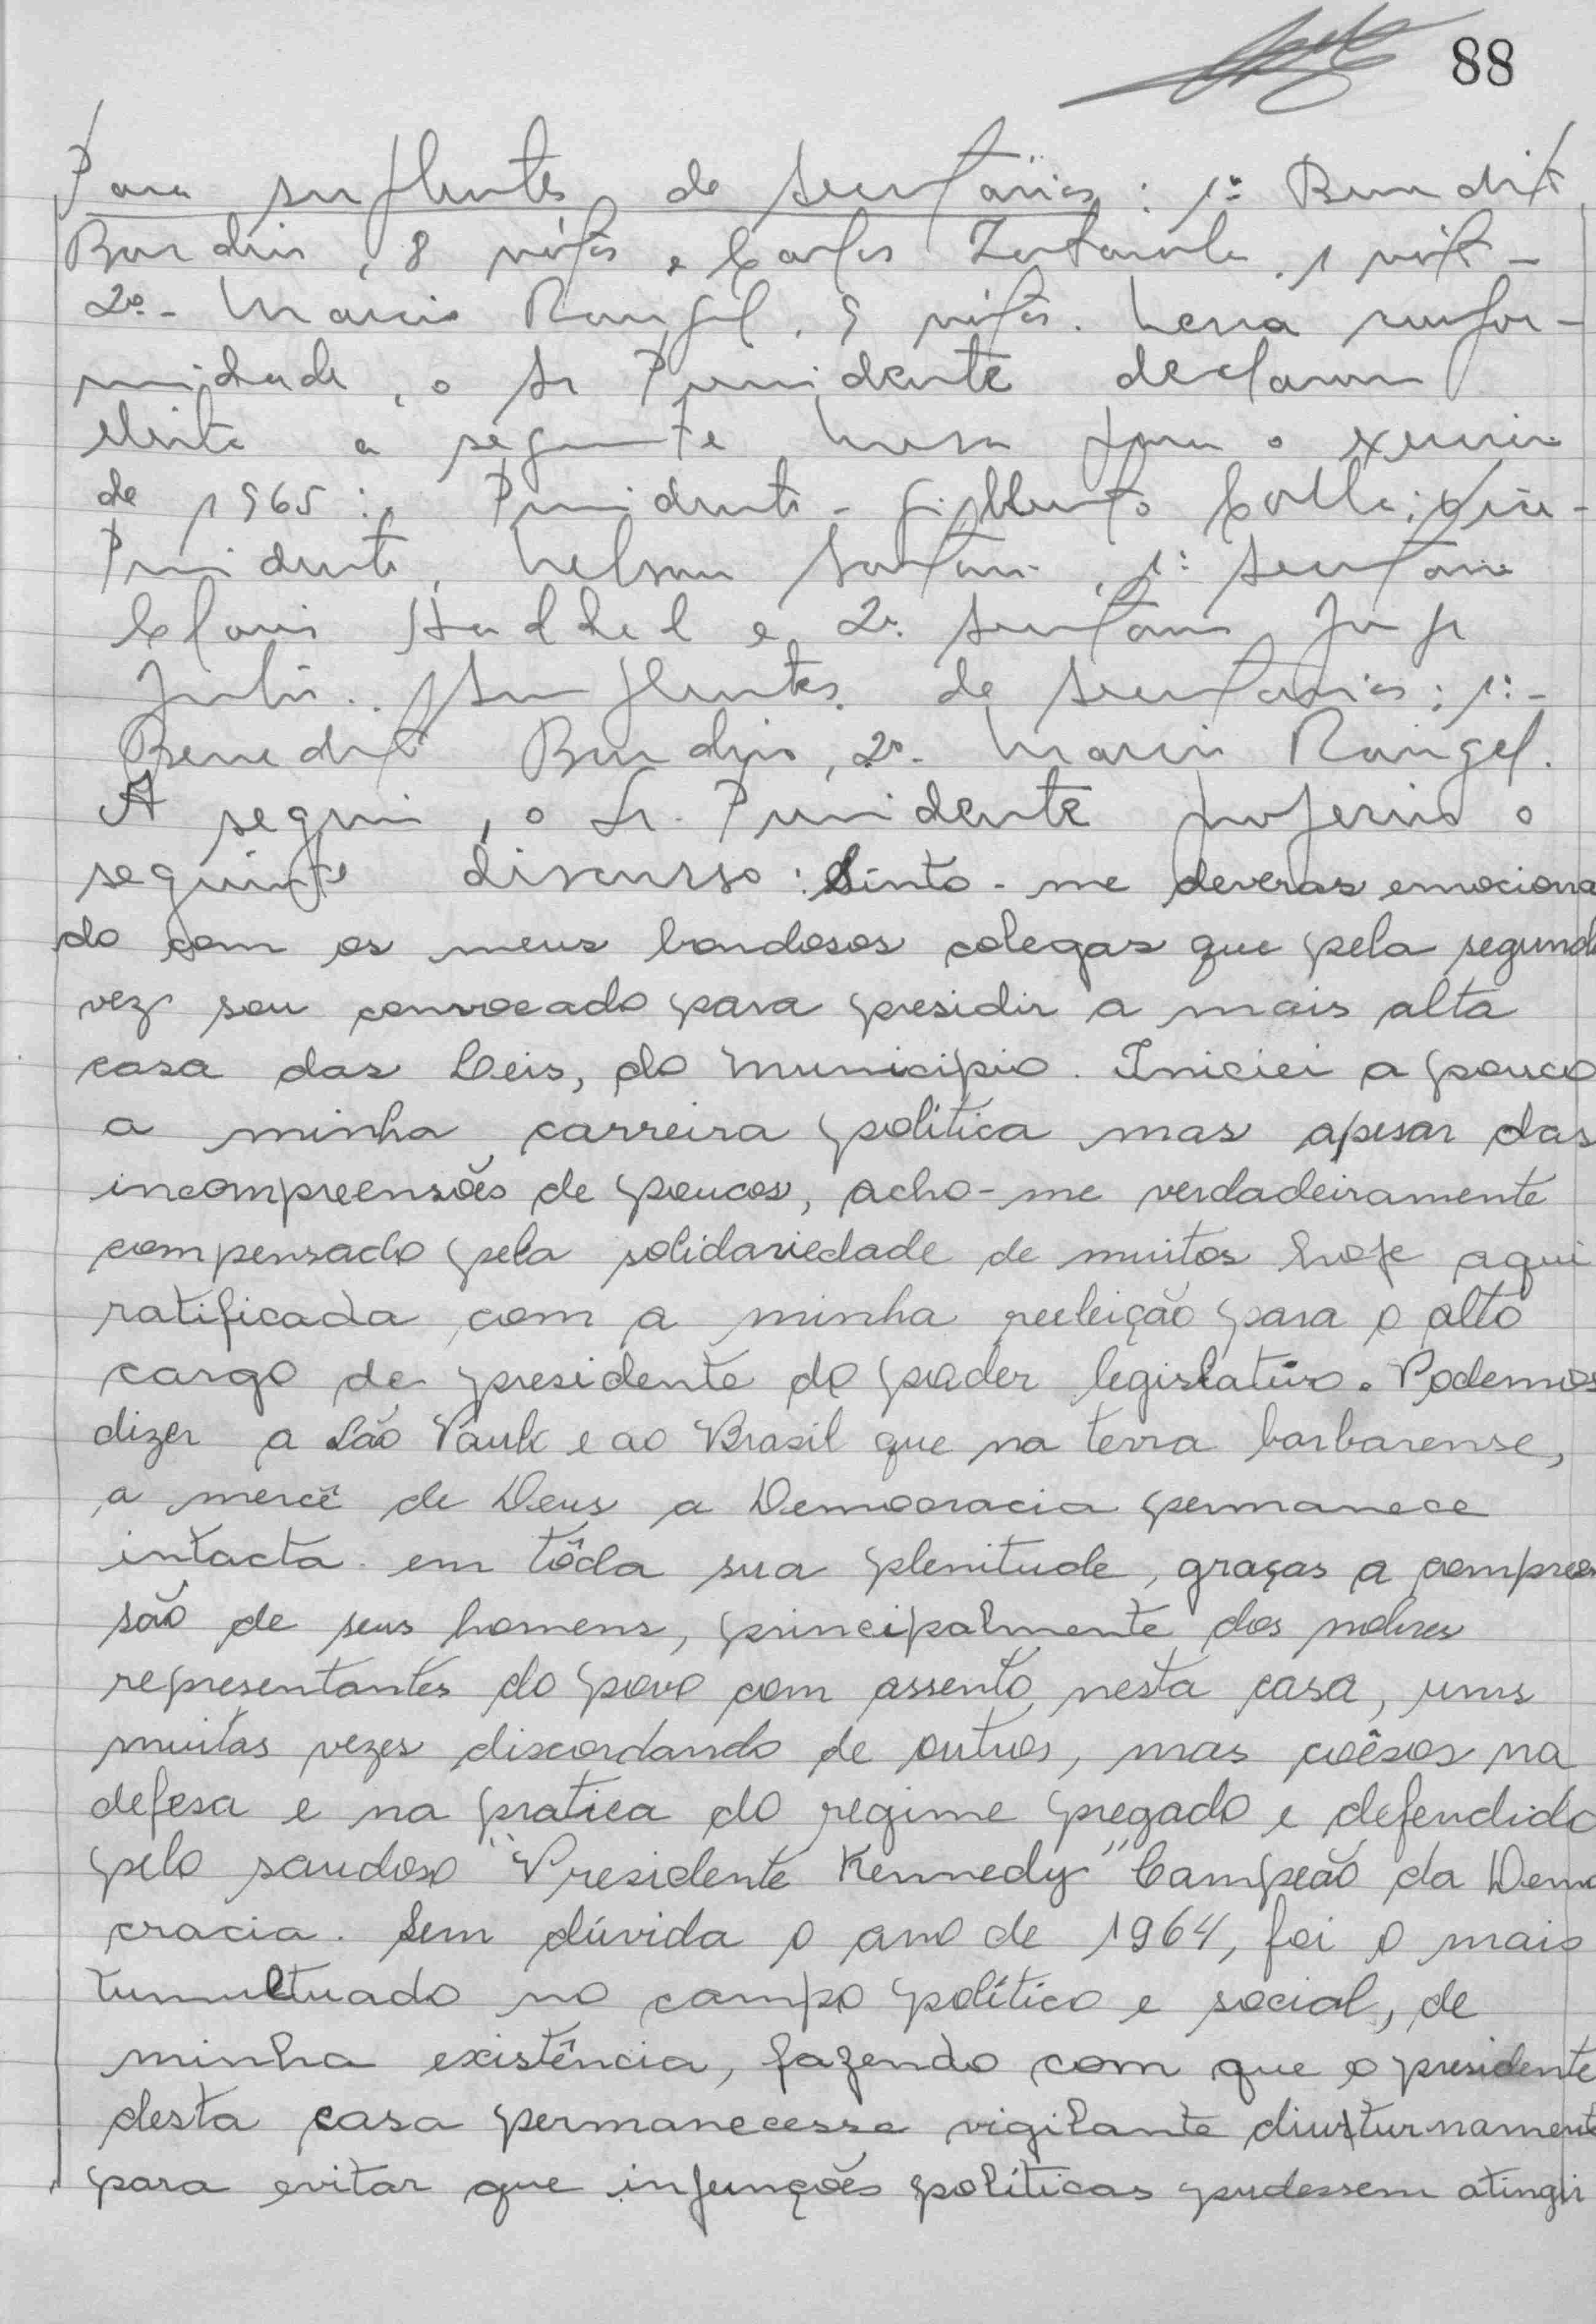 88
Para suplentes de secretários: 1º Benedito
Bordin, 8 votos, e Carlos 1 voto -
2º - Marcio Rangel, 9 votos. Nessa confor-
midade, o Sr Presidente declarou
eleita a seguinte Mesa para o exercício
de 1965: Presidente - Colla; Vice-
Presidente, Nelson 1º Secretário
Clovis Haddad e 2º Secretário Jorge
Suplentes de Secretários: 1º -
Benedito Bordin, 2º - Marcio Rangel.
A seguir, o Sr. Presidente proferiu o
seguinte discurso: Sinto-me deveras emociona
do com os meus bondosos colegas que pela segunda
vez sou convocado para presidir a mais alta
casa das Leis, do Municipio. Iniciei a pouco
a minha carreira política mas apesar das
incompreensões de poucos, acho-me verdadeiramente
compensado pela solidariedade de muitos hoje aqui
ratificada com a minha reeleição para o alto
cargo de presidente do poder legislativo. Podemos
dizer a São Paulo e ao Brasil que na terra barbarense,
a mercê de Deus a Democracia permanece
intacta em tôda sua plenitude, graças a compreen
são de seus homens, principalmente dos nobres
representantes do povo com assento nesta casa, uns
muitas vezes discordando de outros, mas coêsos na
defesa e na pratica do regime pregado e defendido
pelo saudoso "Presidente Kennedy" Campeão da Demo
cracia. Sem dúvida o ano de 1964, foi o mais
tumultuado no campo político e social, de
minha existência, fazendo com que o presidente
desta casa permanecesse vigilante diuturnamente
para evitar que injunções políticas pudessem atingir